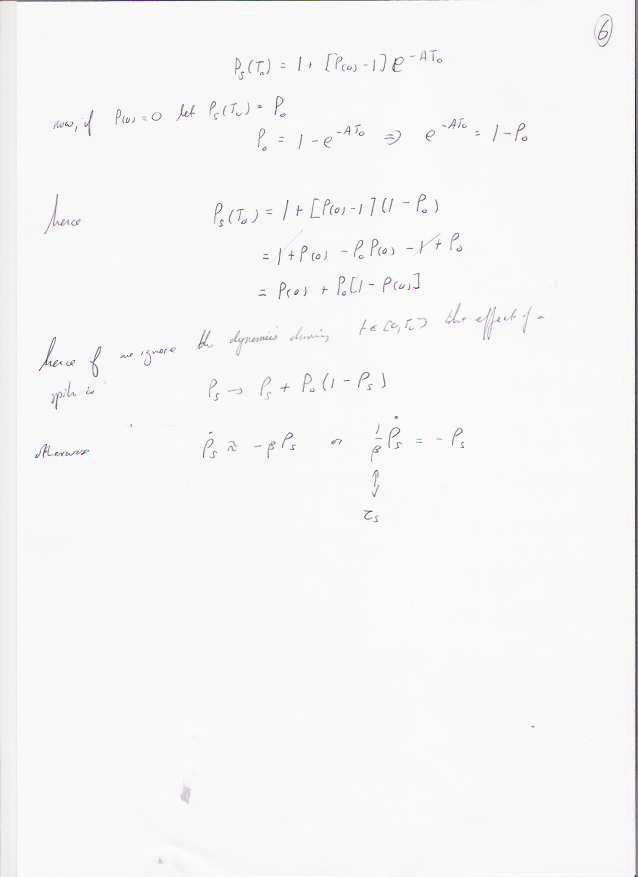 6
P_s(T_0) = 1 + [P(0) - 1] e^{-AT_0}
now, if P(0) = 0 let P_s(T_0) = P_0
P_0 = 1 - e^{-AT_0} ⇒ e^{-AT_0} = 1 - P_0
hence P_s(T_0) = 1 + [P(0) - 1](1 - P_0)
= 1 + P(0) - P_0 P(0) - 1 + P_0
= P(0) + P_0[1 - P(0)]
hence if we ignore the dynamics during t ∈ [0, T_0] the effect of a
spike is P_s → P_s + P_0(1 - P_s)
otherwise Ṗ_s ≈ -β P_s or 1/β Ṗ_s = - P_s
↕
τ_s